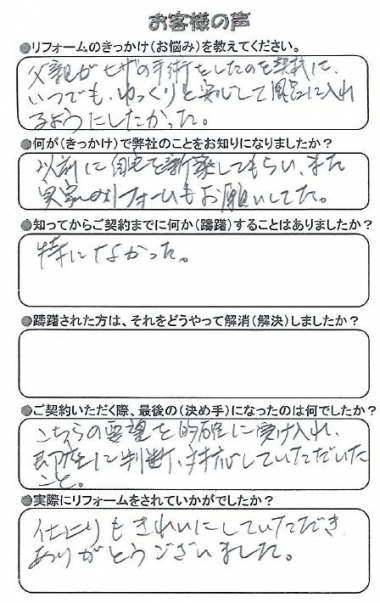 お客様の声
●リフォームのきっかけ(お悩み)を教えてください。
父親がヒザの手術をしたのを契機に、
いつでも、ゆっくりと安心して風呂に入れ
るようにしたかった。
●何が(きっかけ)で弊社のことをお知りになりましたか?
以前に自宅を新築してもらい、また
実家のリフォームもお願いしてた。
●知ってからご契約までに何か(躊躇)することはありましたか?
特になかった。
●躊躇された方は、それをどうやって解消(解決)しましたか?
●ご契約いただく際、最後の(決め手)になったのは何でしたか?
こちらの要望を的確に受け入れ、
即座に判断、対応していただいた
こと。
●実際にリフォームをされていかがでしたか?
仕上りもきれいにしていただき
ありがとうございました。